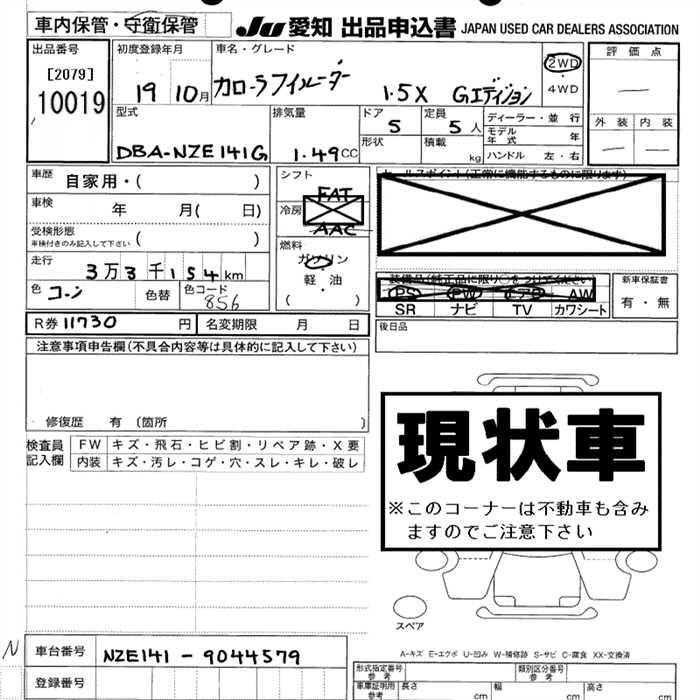 車内保管・守衛保管
JU 愛知 出品申込書 JAPAN USED CAR DEALERS ASSOCIATION
出品番号
[2079]
10019
初度登録年月
19 10月
車名・グレード
カローラフィールダー 1.5X Gエディション
2WD
・
4WD
評価点
外装 内装
型式
DBA-NZE141G
排気量
1.49cc
ドア
5
形状
定員
5人
積載
kg
ディーラー・並行
モデル年式 年
ハンドル 左・右
車歴 自家用・( )
車検 年 月( 日)
受検形態
車検付きのみ記入して下さい ( )
走行
3万3千154km
色
色替
色コード
856
シフト
FAT
冷房
AAC
燃料
ガソリン
軽・油
( )
セールスポイント(正常に機能するものに限ります)
装備品(純正品に限り○をつけてください)
PS PW エアB AW
SR ナビ TV カワシート
新車保証書
有・無
R券 11730 円 名変期限 月 日
後日品
注意事項申告欄(不具合内容等は具体的に記入して下さい)
修復歴 有 〔箇所 〕
検査員
記入欄
FW キズ・飛石・ヒビ割・リペア跡・X要
内装 キズ・汚レ・コゲ・穴・スレ・キレ・破レ
現状車
※このコーナーは不動車も含み
ますのでご注意下さい
スペア
A-キズ E-エクボ U-凹み W-補修跡 S-サビ C-腐食 XX-交換済
N
車台番号 NZE141-9044579
登録番号
形式指定番号 参考
類別区分番号 参考
車庫証明用 参考
長さ cm 幅 cm 高さ cm